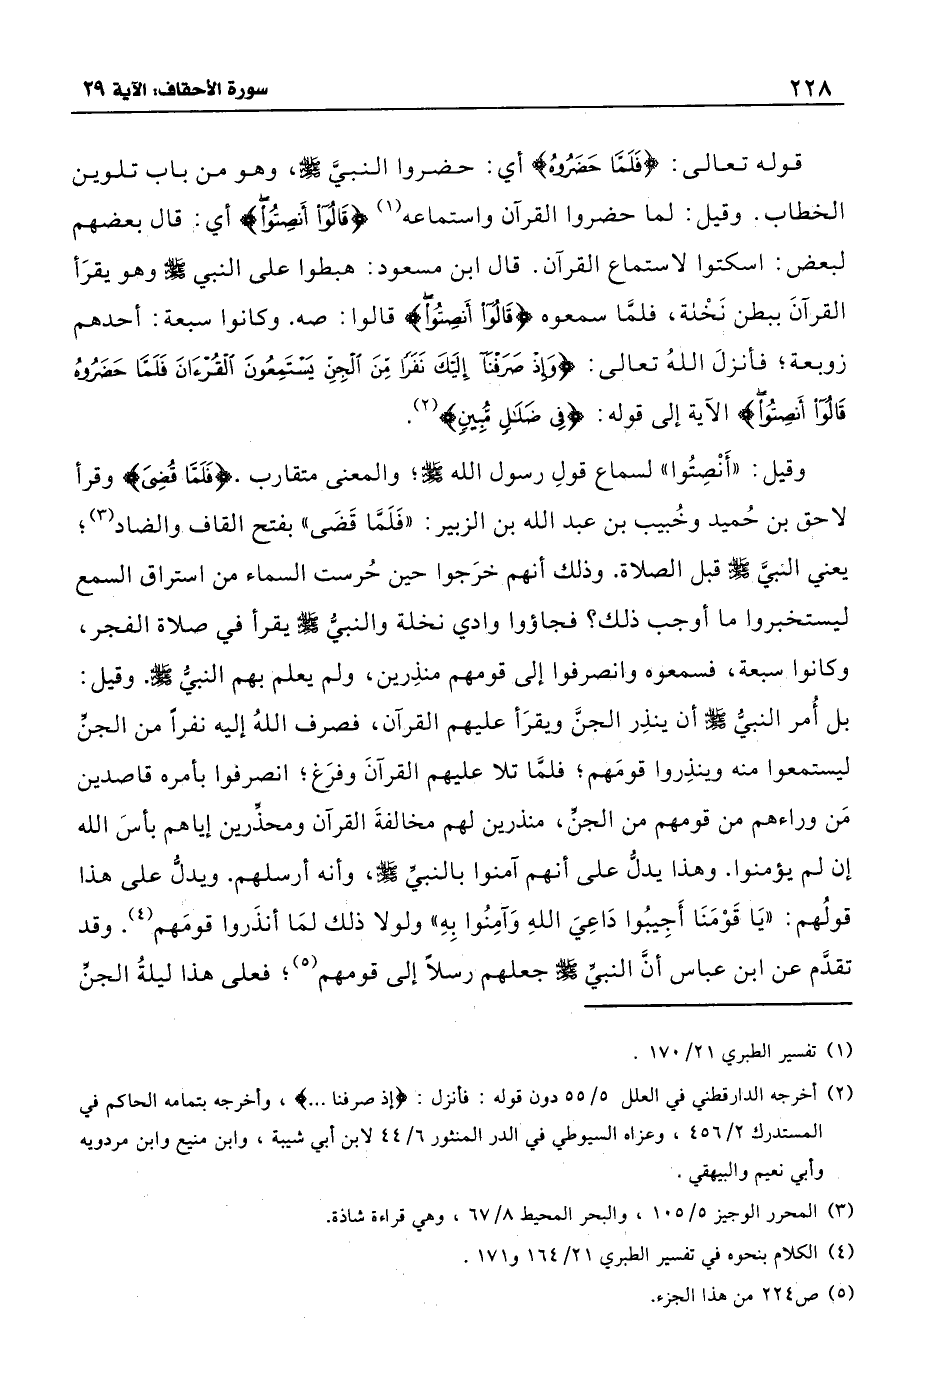 ٢٢٨ سورة الأحقاف: الآية ٢٩
قوله تعالى: ﴿فَلَمَّا حَضَرُوهُ﴾ أي: حضروا النبيَّ ﷺ، وهو من باب تلوين
الخطاب. وقيل: لما حضروا القرآن واستماعه(١) ﴿قَالُوٓاْ أَنصِتُواْۖ﴾ أي: قال بعضهم
لبعض: اسكتوا لاستماع القرآن. قال ابن مسعود: هبطوا على النبي ﷺ وهو يقرَأ
القرآنَ ببطن نَخْلة، فلمَّا سمعوه ﴿قَالُوٓاْ أَنصِتُواْۖ﴾ قالوا: صه. وكانوا سبعة: أحدهم
زوبعة؛ فأنزلَ اللهُ تعالى: ﴿وَإِذْ صَرَفْنَآ إِلَيْكَ نَفَرًا مِّنَ ٱلْجِنِّ يَسْتَمِعُونَ ٱلْقُرْءَانَ فَلَمَّا حَضَرُوهُ
قَالُوٓاْ أَنصِتُواْۖ﴾ الآية إلى قوله: ﴿فِى ضَلَٰلٍ مُّبِينٍ﴾(٢).
وقيل: «أَنْصِتُوا» لسماع قولِ رسول الله ﷺ؛ والمعنى متقارب. ﴿فَلَمَّا قُضِىَ﴾ وقرأ
لاحق بن حُميد وخُبيب بن عبد الله بن الزبير: «فَلَمَّا قَضَى» بفتح القاف والضاد(٣)؛
يعني النبيَّ ﷺ قبل الصلاة. وذلك أنهم خرَجوا حين حُرست السماء من استراق السمع
ليستخبروا ما أوجب ذلك؟ فجاؤوا وادي نخلة والنبيُّ ﷺ يقرأ في صلاة الفجر،
وكانوا سبعة، فسمعوه وانصرفوا إلى قومهم منذِرين، ولم يعلم بهم النبيُّ ﷺ. وقيل:
بل أُمر النبيُّ ﷺ أن ينذِر الجنَّ ويقرَأ عليهم القرآن، فصرف اللهُ إليه نفراً من الجنِّ
ليستمعوا منه وينذِروا قومَهم؛ فلمَّا تلا عليهم القرآنَ وفرَغ؛ انصرفوا بأمره قاصدين
مَن وراءهم من قومهم من الجنِّ، منذرين لهم مخالفةَ القرآن ومحذِّرين إياهم بأسَ الله
إن لم يؤمنوا. وهذا يدلُّ على أنهم آمنوا بالنبيِّ ﷺ، وأنه أرسلهم. ويدلُّ على هذا
قولُهم: «يَا قَوْمَنَا أَجِيبُوا دَاعِيَ اللهِ وَآمِنُوا بِهِ» ولولا ذلك لمَا أنذَروا قومَهم(٤). وقد
تقدَّم عن ابن عباس أنَّ النبيَّ ﷺ جعلهم رسلاً إلى قومهم(٥)؛ فعلى هذا ليلةُ الجنِّ
(١) تفسير الطبري ٢١/ ١٧٠ .
(٢) أخرجه الدارقطني في العلل ٥/ ٥٥ دون قوله : فأنزل : ﴿إذ صرفنا ...﴾ ، وأخرجه بتمامه الحاكم في
المستدرك ٢/ ٤٥٦ ، وعزاه السيوطي في الدر المنثور ٦/ ٤٤ لابن أبي شيبة ، وابن منيع وابن مردويه
وأبي نعيم والبيهقي .
(٣) المحرر الوجيز ٥/ ١٠٥ ، والبحر المحيط ٨/ ٦٧ ، وهي قراءة شاذة.
(٤) الكلام بنحوه في تفسير الطبري ٢١/ ١٦٤ و١٧١ .
(٥) ص٢٢٤ من هذا الجزء.